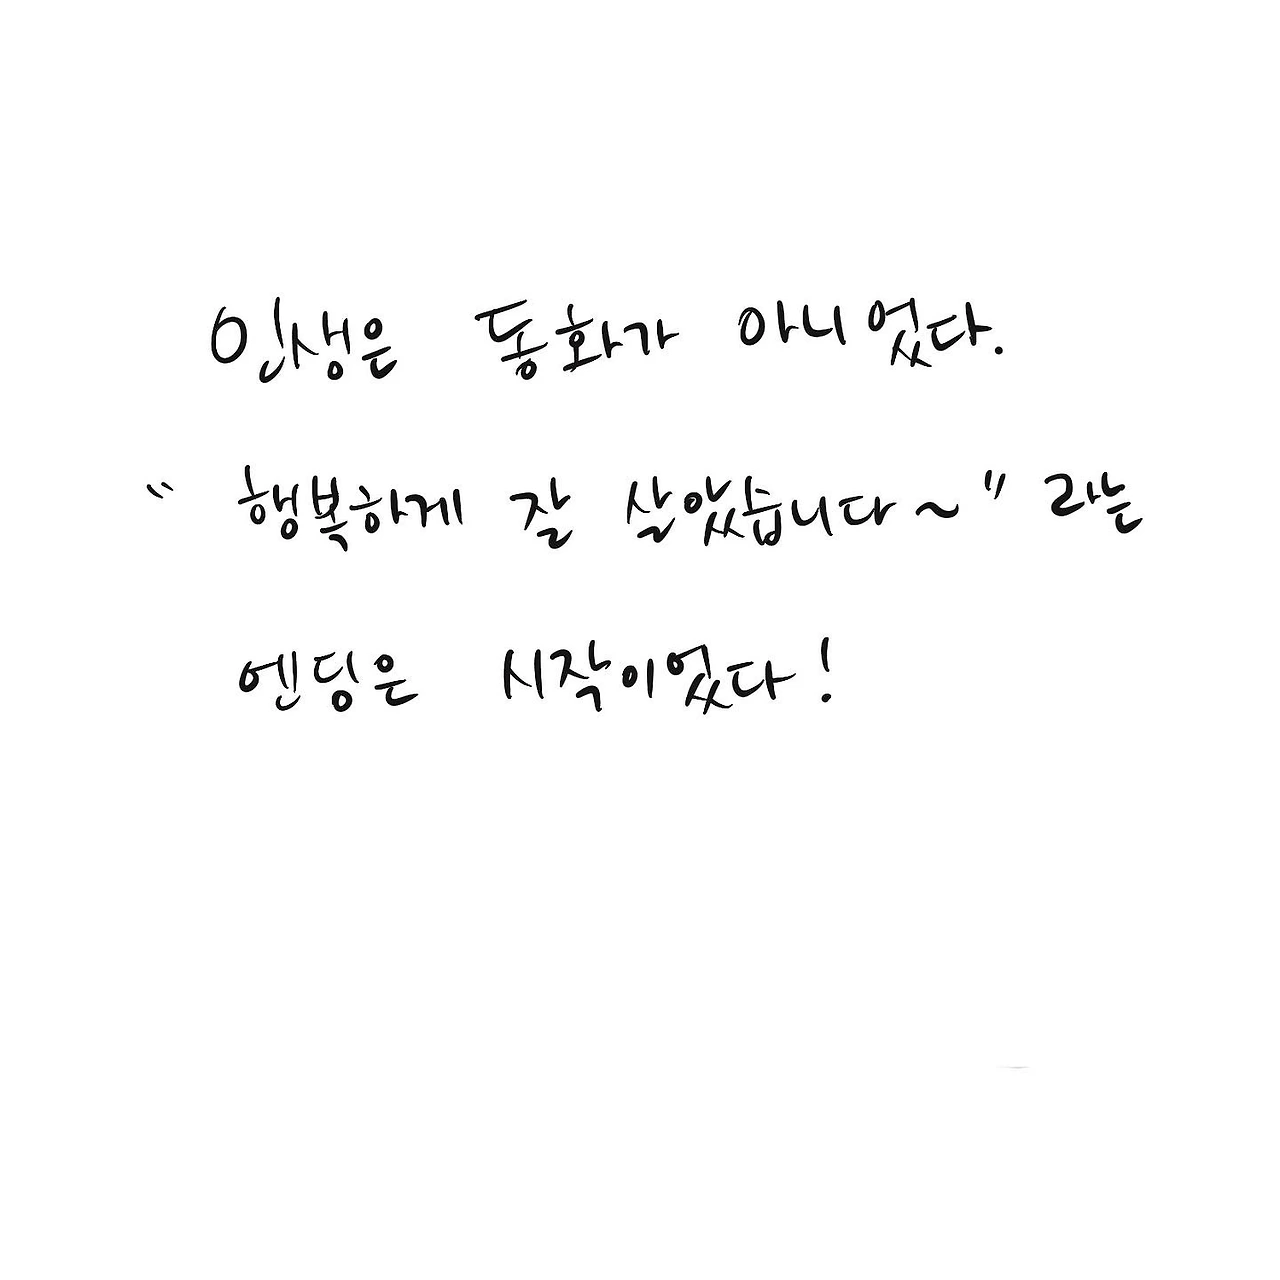 인생은 동화가 아니었다.
“행복하게 잘 살았습니다~” 라는
엔딩은 시작이었다!